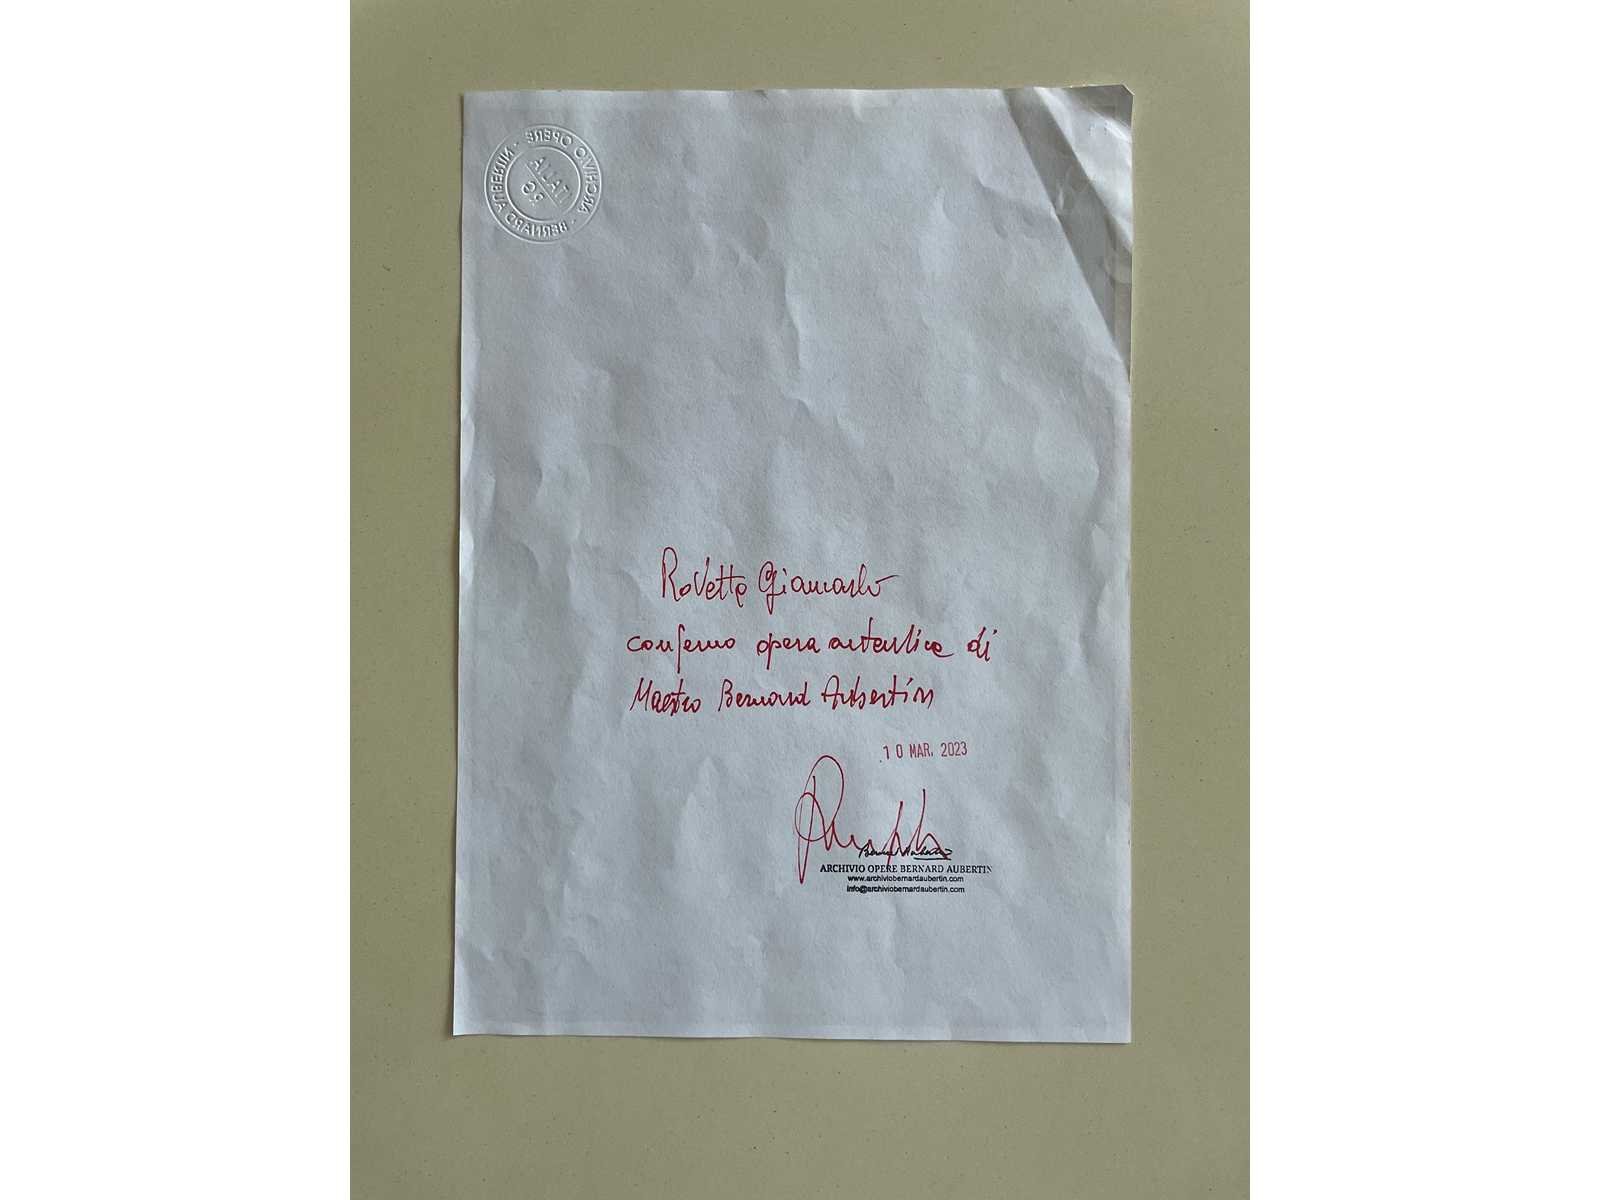 ARCHIVIO OPERE - BERNARD AUBERTIN -
ITALIA
RG
Rovetta Giancarlo
confermo opera autentica di
Maestro Bernard Aubertin
10 MAR. 2023
Bernard Aubertin
ARCHIVIO OPERE BERNARD AUBERTIN
www.archiviobernardaubertin.com
info@archiviobernardaubertin.com